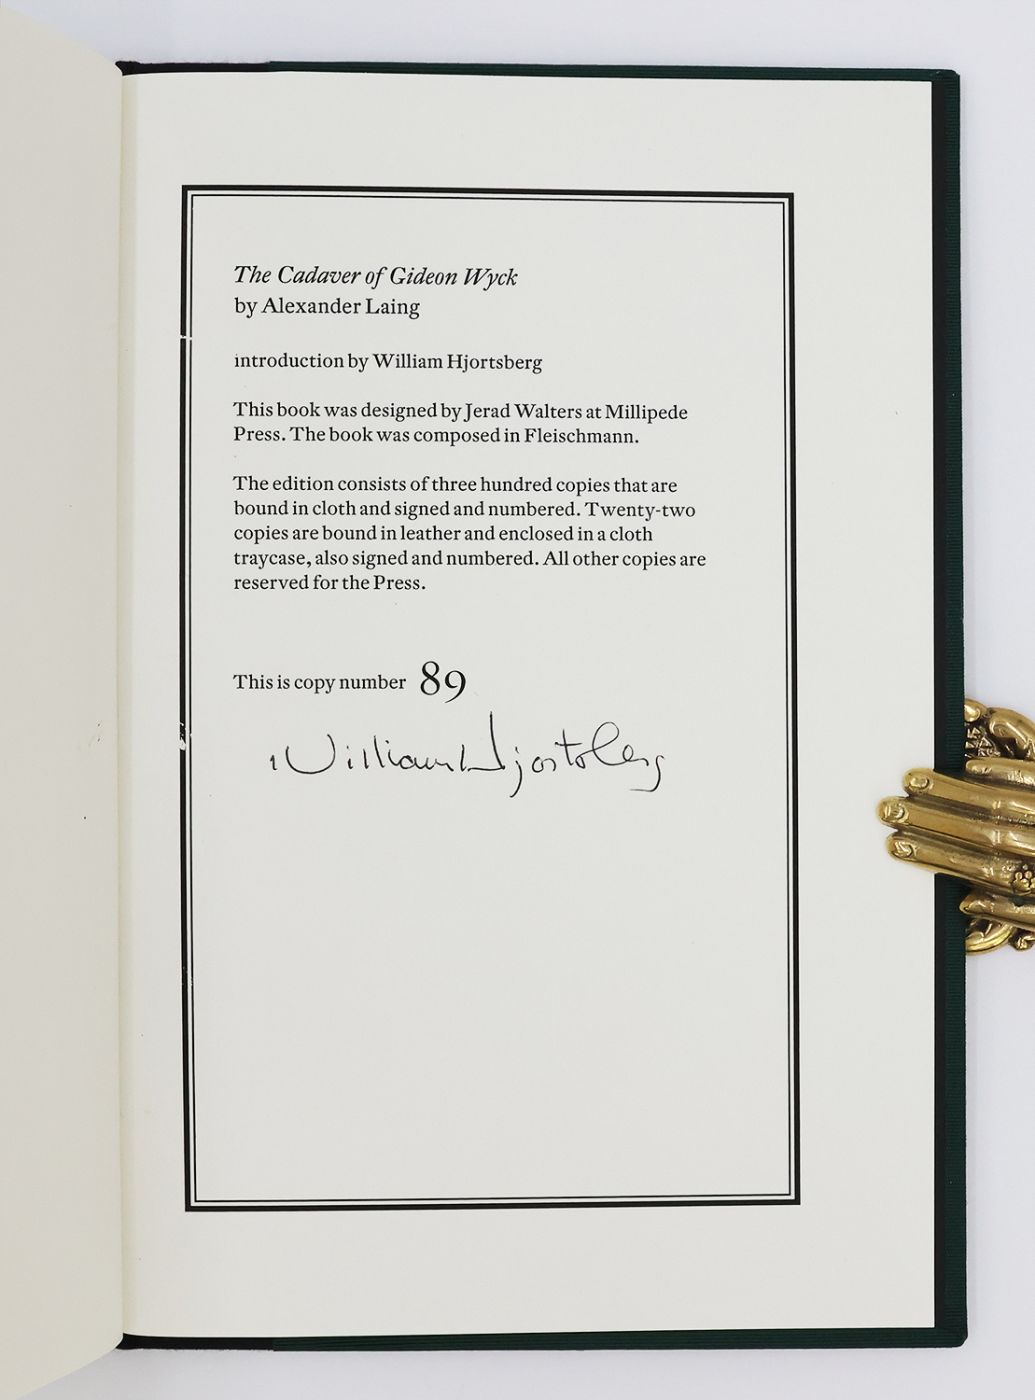 The Cadaver of Gideon Wyck
by Alexander Laing
introduction by William Hjortsberg
This book was designed by Jerad Walters at Millipede
Press. The book was composed in Fleischmann.
The edition consists of three hundred copies that are
bound in cloth and signed and numbered. Twenty-two
copies are bound in leather and enclosed in a cloth
traycase, also signed and numbered. All other copies are
reserved for the Press.
This is copy number 89
William Hjortsberg